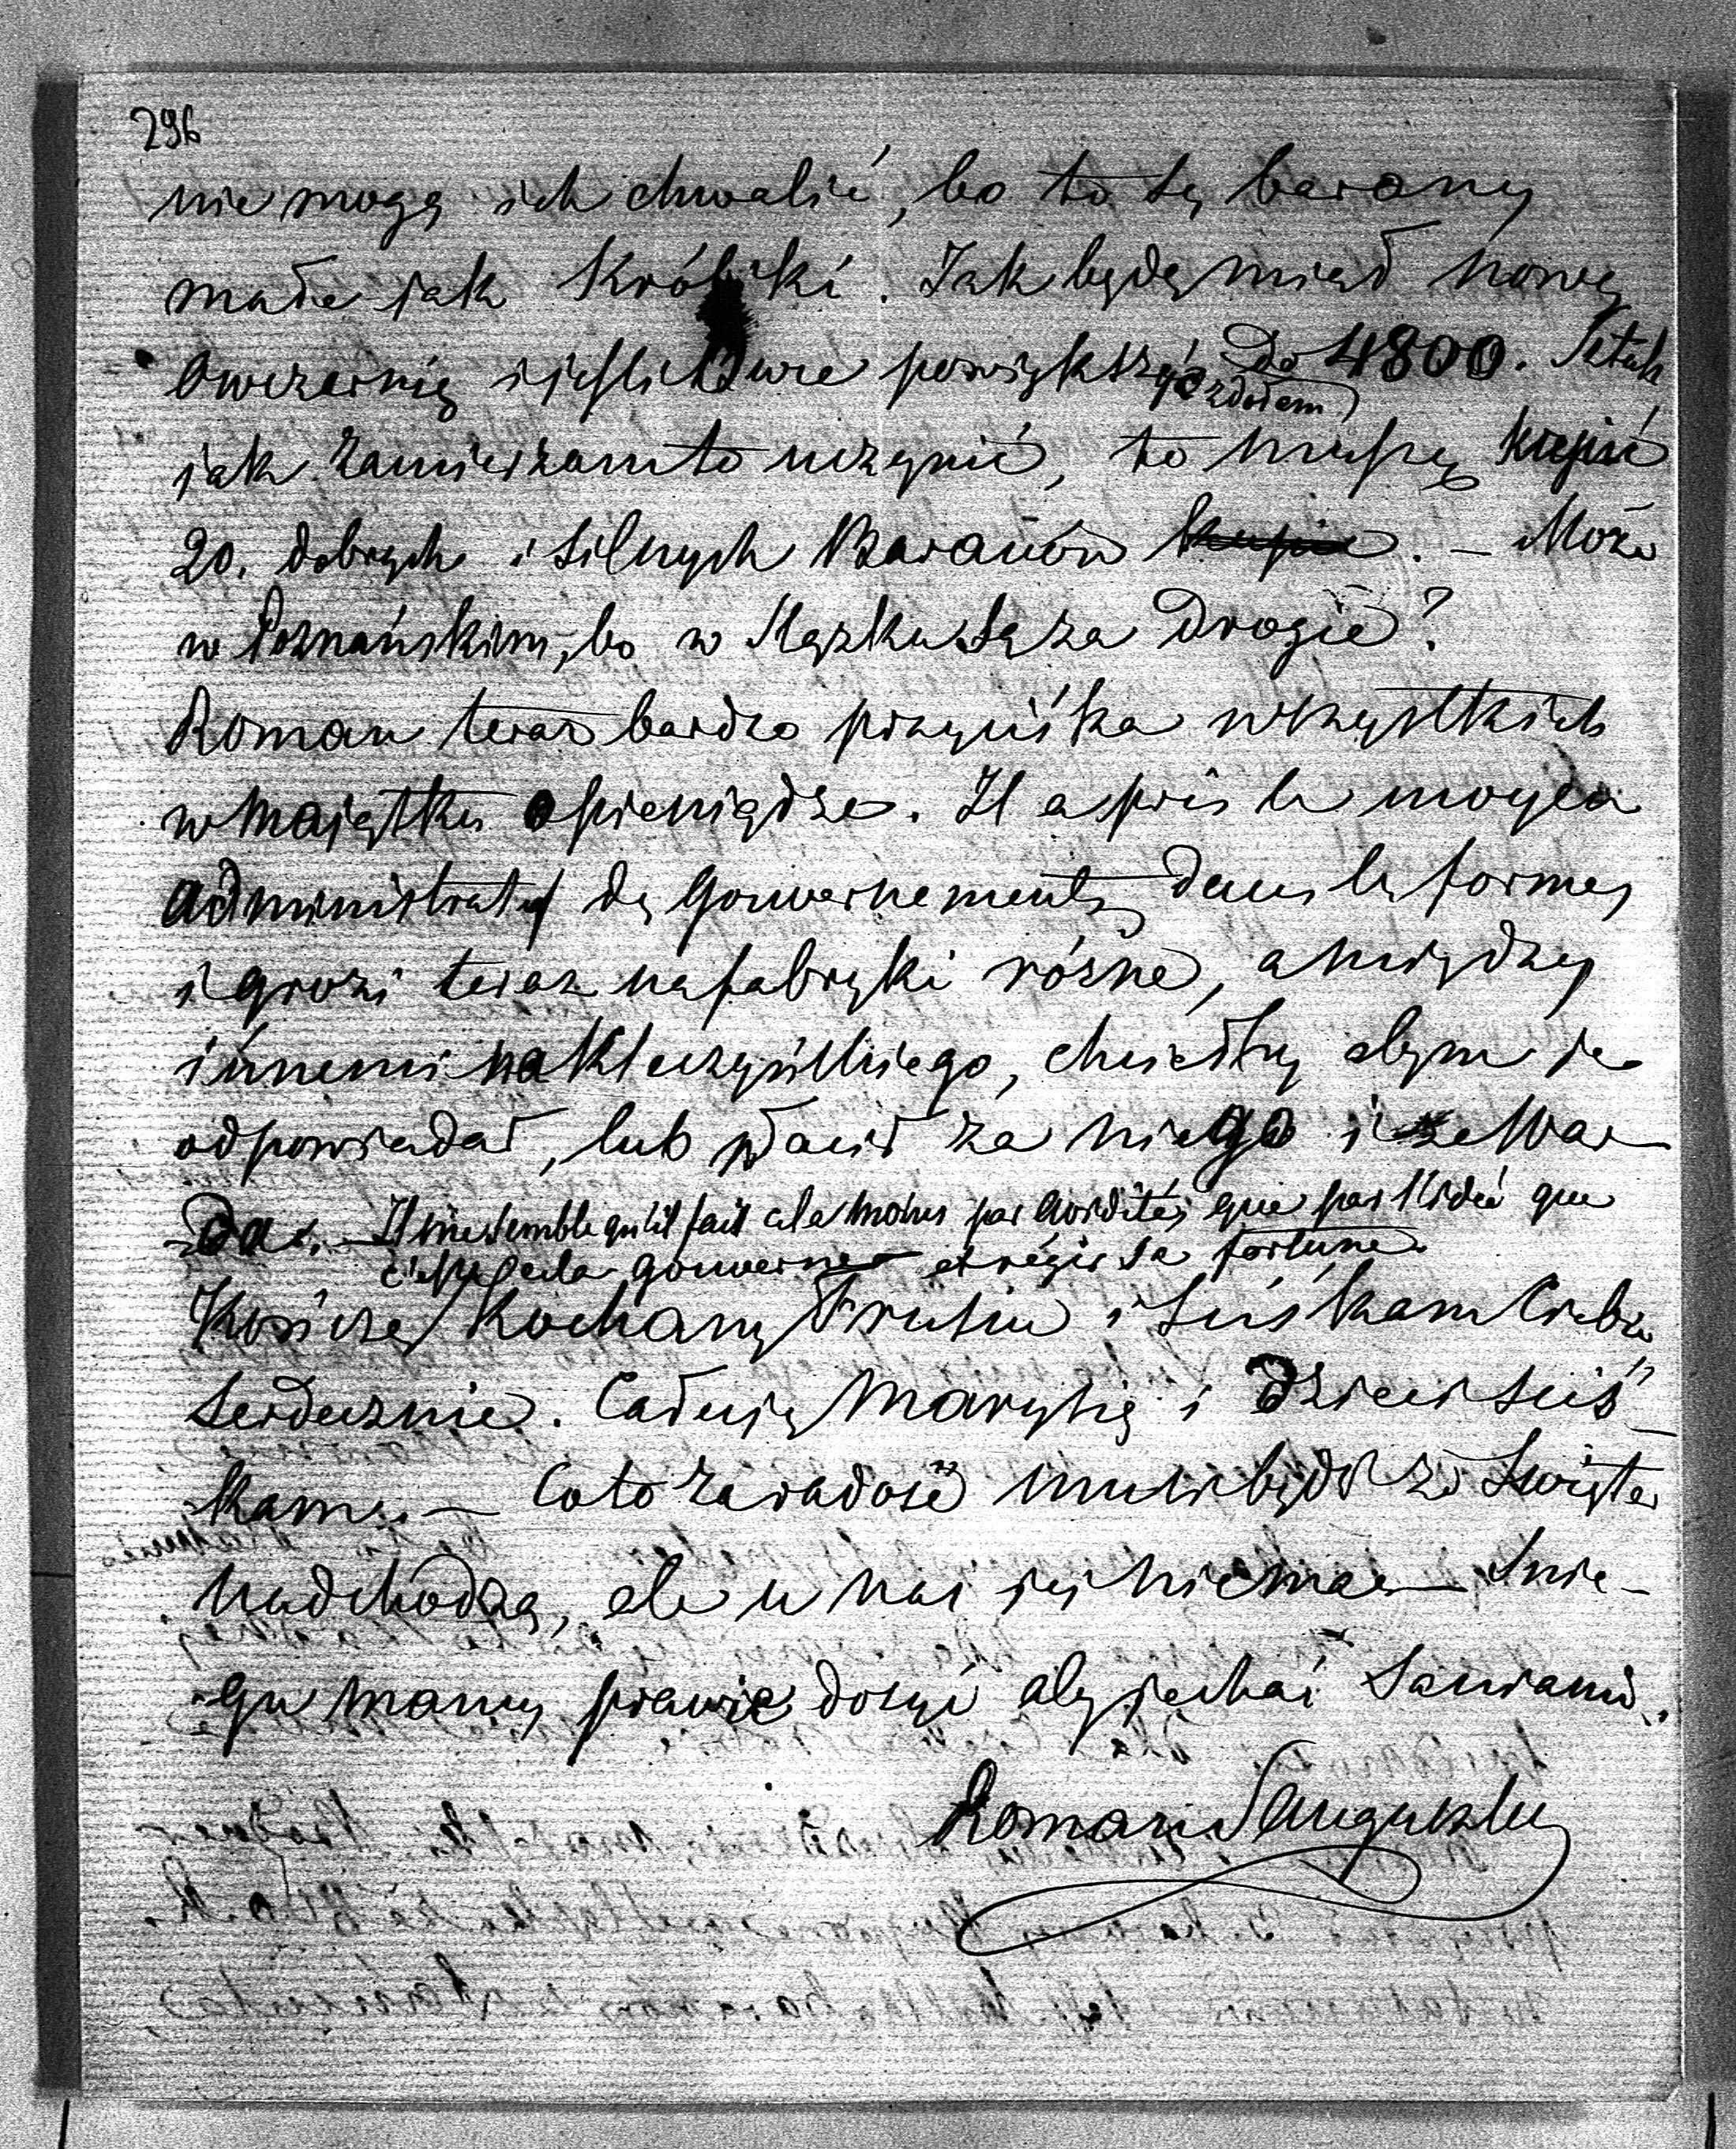 296
nie mogę ich chwalić, bo to są barany
małe jak Króliki. Jak będę miał nową
Owczarnię i jeśli Owce powiększyć do 4800. Sztuk
zdołam
jak zamierzam to uczynić, to muszę kupić
20. dobrych i silnych Baranów kupić. – Może
w Poznańskim, bo w Szląsku są za Drogie?
Roman teraz bardzo przyciśka wszystkich
w Majątku o pieniądze. Il a pris le moyen
administratif de Gouvernements dans les formes
i grozi teraz na fabryki różne, a między
innemi na Kleczyńskiego, chciałby abym ja
odpowiadał, lub płacił za niego i ze War
da. – Il me semble qu'il fait cela moins par avidité, que par l'idée que
c'est cela gouverner et régir sa fortune.
Kończę Kochany Frusiu i Suiśkam Ciebie
Serdecznie. Całuję Marynię i Dzieci suiś-
kam. – Co to za radość musi bydź że Święta
nadchodzą, ale u nas jej niema – Śnie-
gu mamy prawie dosyć aby jechać Saniami.
Roman Sanguszko